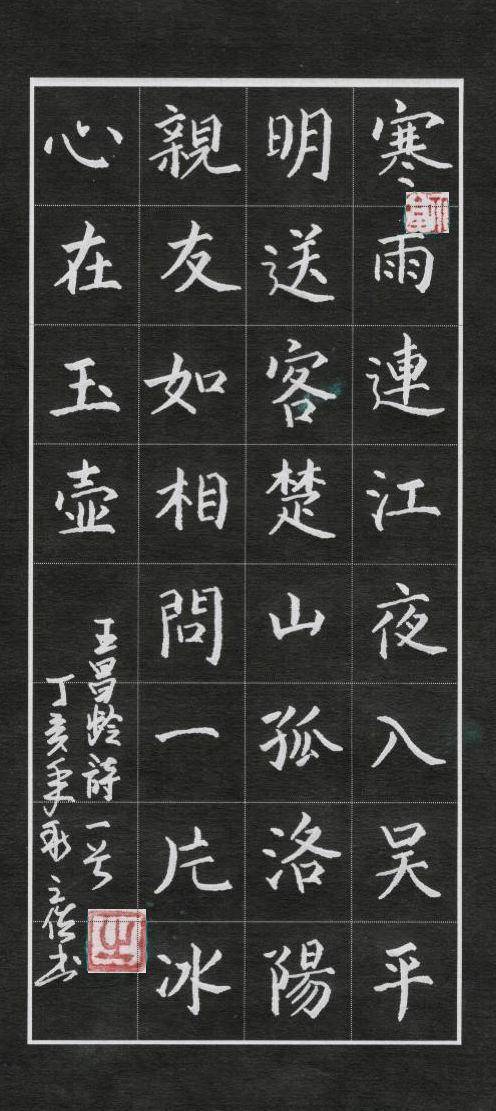 寒雨連江夜入吴平
明送客楚山孤洛陽
親友如相問一片冰
心在玉壶
王昌龄詩一首
丁亥年